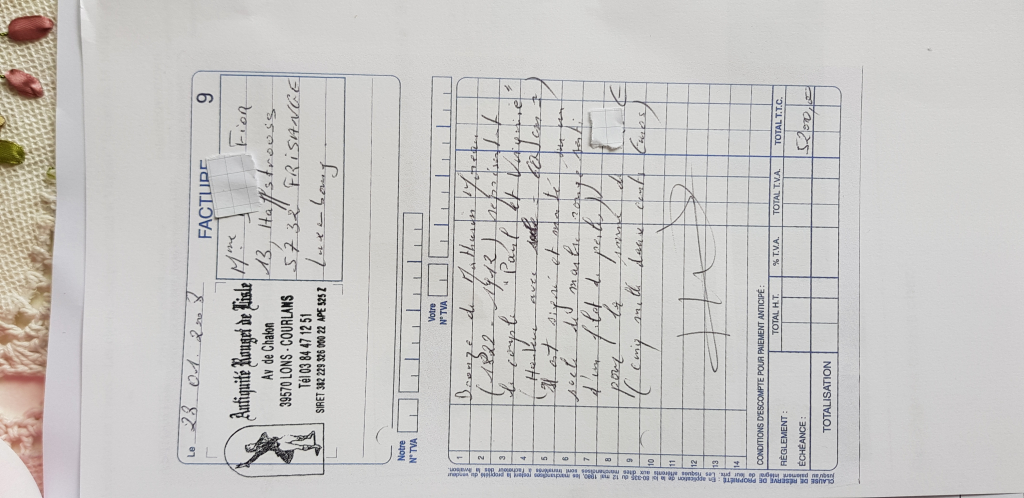 FACTURE 9
Le 23.01.2008
Antiquité Rouget de Lisle
Av de Chalon
39570 LONS - COURLANS
Tél 03 84 47 12 51
SIRET 382 229 326 000 22 APE 525 Z
Mme Fion
13, Haffstrooss
5732 FRISANGE
Luxembourg
Notre N° TVA
Votre N° TVA
1 Bronze de Mathurin Moreau
2 (1822 - 1912) représentant
3 le couple "Paul et Virginie"
4 (Hauteur avec socle = cm)
5 Il est signé et monté sur un
6 socle de marbre rouge serti
7 d'un filet de perles)
8 pour la somme de €
9 (cinq mille deux cents Euros)
10
11
12
13
14
CONDITIONS D'ESCOMPTE POUR PAIEMENT ANTICIPÉ :
RÈGLEMENT :
ÉCHÉANCE :
TOTAL H.T. % T.V.A. TOTAL T.V.A. TOTAL T.T.C.
5200,00
TOTALISATION
CLAUSE DE RÉSERVE DE PROPRIÉTÉ : En application de la loi 80.335 du 12 mai 1980, les marchandises restent la propriété du vendeur
jusqu'au paiement intégral de leur prix. Les risques afférents aux dites marchandises sont transférés à l'acheteur dès la livraison.